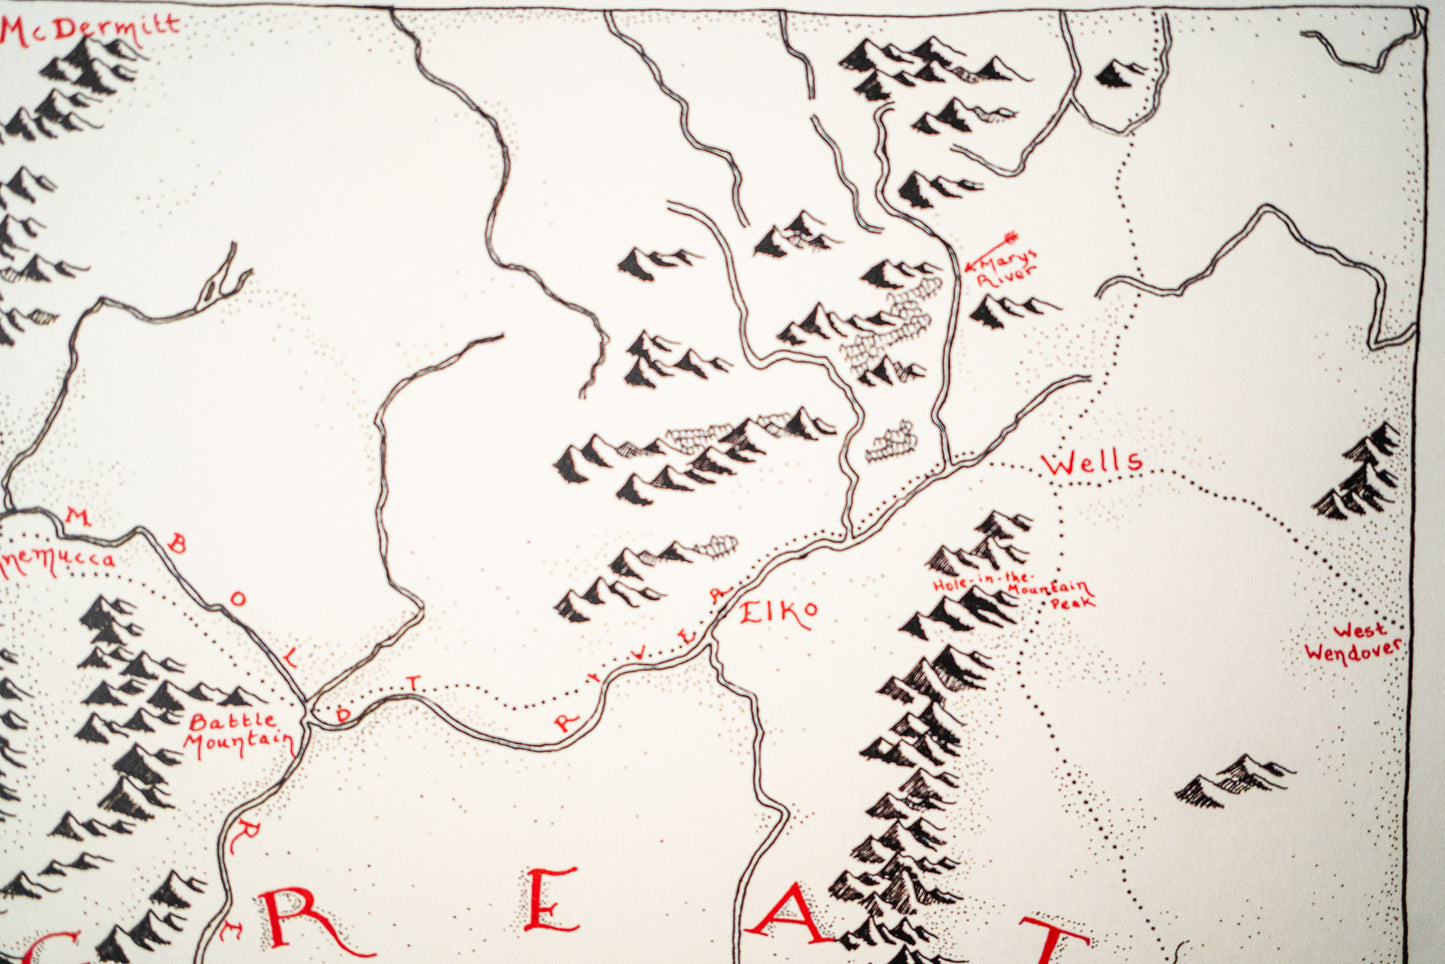 McDermitt
Marys
River
Wells
HUMBOLDT RIVER
nnemucca
Hole-in-the-
Mountain
Peak
Elko
West
Wendover
Battle
Mountain
RE
GREAT